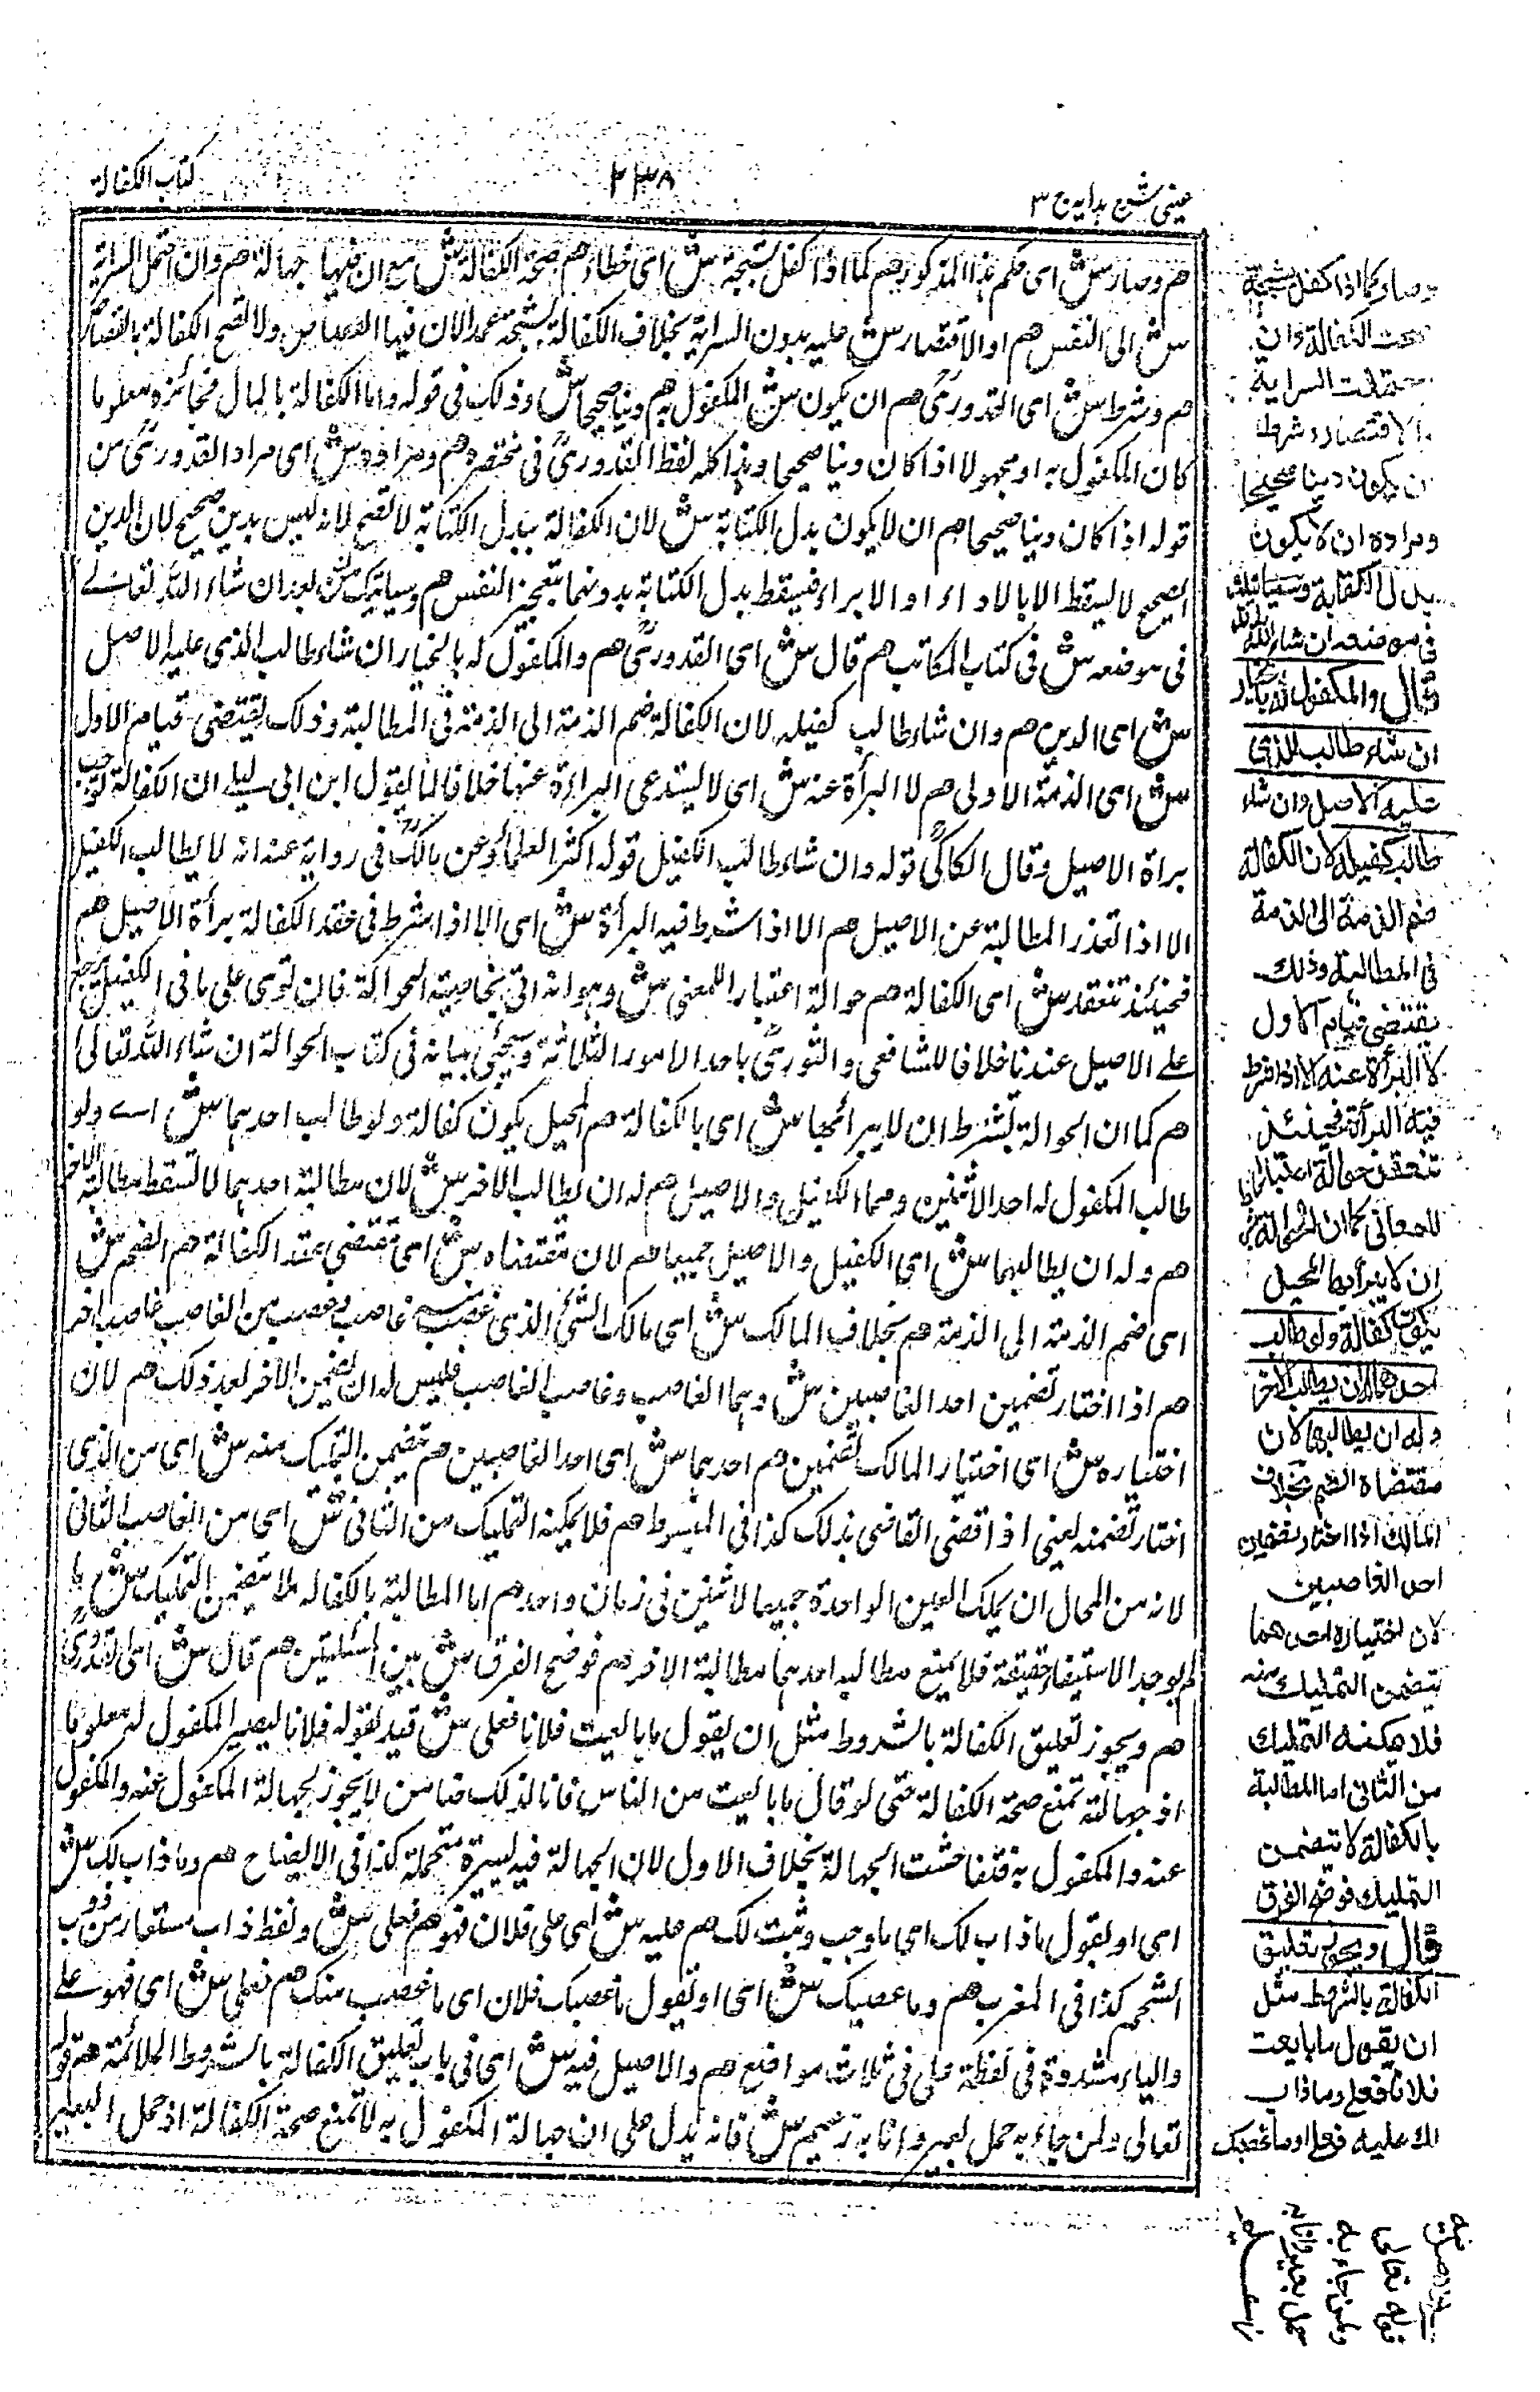 عيني شرح هدايه ج ٣
٢٣٨
كتاب الكفالة
هم وصار ش اى حكم هذا المذكور هم كما اذا كفل بشجة ش اى خطاء هم صحة الكفالة ش مع ان فيها جهالة هم وان احتمل السراية
ش الى النفس هم او الاقتصار ش عليه بدون السراية بخلاف الكفالة بشجة عمدا لان فيها القصاص ولا تصح الكفالة بالقصاص
هم وشرط ش اى القدورى هم ان يكون ش المكفول به هم دينا صحيحا ش وذلك فى قوله واما الكفالة بالمال فجائزة معلوما
كان المكفول به او مجهولا اذا كان دينا صحيحا وهذا كله لفظ القدورى فى مختصره هم ومراده ش اى مراد القدورى من
قوله اذا كان دينا صحيحا هم ان لا يكون بدل الكتابة ش لان الكفالة ببدل الكتابة لا تصح لانه ليس بدين صحيح لان الدين
الصحيح لا يسقط الا بالاداء او الابراء فيسقط بدل الكتابة بدونهما بتعجيز النفس هم وسياتيك ش بعد ان شاء الله تعالى
فى موضعه ش فى كتاب المكاتب هم قال ش اى القدورى هم والمكفول له بالخيار ان شاء طالب الذى عليه الاصل
ش اى الدين هم وان شاء طالب كفيله لان الكفالة ضم الذمة الى الذمة فى المطالبة وذلك يقتضى قيام الاول
ش اى الذمة الاولى هم لا البرأة عنه ش اى لا يستدعى البراءة عنها خلافا لما يقول ابن ابى ليلى ان الكفالة توجب
براة الاصيل وقال الكاكى قوله وان شاء طالب الكفيل قوله اكثر العلماء وعن مالك فى رواية عنه انه لا يطالب الكفيل
الا اذا تعذر المطالبة عن الاصيل هم الا اذا شرط فيه البرأة ش اى الا اذا شرط فى عقد الكفالة برأة الاصيل هم
فحينئذ تنعقد ش اى الكفالة هم حوالة اعتبارا للمعنى ش وهو انه اتى بخاصية الحوالة فان توى على ما فى الكفيل يرجع
على الاصيل عندنا خلافا للشافعى والثورى باحد الامور الثلاثة وسيجئ بيانه فى كتاب الحوالة ان شاء الله تعالى
هم كما ان الحوالة بشرط ان لا يبرأ بها ش اى بالكفالة هم المحيل يكون كفالة ولو طالب احدهما ش اى ولو
طالب المكفول له احد الاثنين وهما الكفيل والاصيل هم له ان يطالب الاخر ش لان مطالبة احدهما لا تسقط مطالبة الاخر
هم وله ان يطالبهما ش اى الكفيل والاصيل جميعا هم لان مقتضاه ش اى مقتضى عقد الكفالة هم الضم ش
اى ضم الذمة الى الذمة هم بخلاف المالك ش اى مالك الشئ الذى غصب منه غاصب وغصب من الغاصب غاصب اخر
هم اذا اختار تضمين احد الغاصبين ش وهما الغاصب وغاصب الغاصب فليس له ان يضمن الاخر بعد ذلك هم لان
اختياره ش اى اختيار المالك تضمين هم احدهما ش اى احد الغاصبين هم يتضمن التمليك منه ش اى من الذى
اختار تضمنه يعنى اذا قضى القاضى بذلك كذا فى المبسوط هم فلا يمكنه التمليك من الثانى ش اى من الغاصب الثانى
لانه من المحال ان يملك العين الواحدة جميعا لاثنين فى زمان واحد هم اما المطالبة بالكفاله لا يتضمن التمليك ش ما
لم يوجد الاستيفاء حقيقة فلا يمنع مطالبه احدهما مطالبة الاخر هم فوضح الفرق ش بين المسئلتين هم قال ش اى القدورى
هم ويجوز تعليق الكفالة بالشروط مثل ان يقول ما بايعت فلانا فعلى ش قيد بقوله فلانا ليصير المكفول له معلوما
اذ جهالته تمنع صحة الكفالة حتى لو قال ما بايعت من الناس فانا لذلك ضامن لا يجوز لجهالة المكفول عنه والمكفول
عنه والمكفول به فتفاحشت الجهالة بخلاف الاول لان الجهالة فيه يسيرة متحملة كذا فى الايضاح هم وما ذاب لك ش
اى او يقول ما ذاب لك اى ما وجب وثبت لك هم عليه ش اى على فلان فهو هم فعلى ش ولفظ ذاب مستعار من ذوب
الشحم كذا فى المغرب هم وما غصبك ش اى او يقول ما غصبك فلان اى ما غصب منك هم فعلى ش اى فهو على
والياء مشددة فى لفظة على فى ثلاث مواضع هم والاصل فيه ش اى فى باب تعليق الكفالة بالشروط الملائمة هم قوله
تعالى ولمن جاء به حمل بعير وانا به زعيم ش فانه يدل على ان جهالة المكفول به لا تمنع صحة الكفالة اذ حمل البعير
وصار كما اذا كفل بشجة
صحت الكفالة وان
احتملت السراية
والاقتصار وشرط
ان يكون دينا صحيحا
ومراده ان لا يكون
بدل الكتابة وسياتيك
فى موضعه ان شاء الله تعالى
قال والمكفول له بالخيار
ان شاء طالب الذى
عليه الاصل وان شاء
طالب كفيله لان الكفالة
ضم الذمة الى الذمة
فى المطالبة وذلك
يقتضى قيام الاول
لا البرأة عنه الا اذا شرط
فيه البرأة فحينئذ
تنعقد حوالة اعتبارا
للمعانى كما ان الحوالة بشرط
ان لا يبرأ بها المحيل
يكون كفالة ولو طالب
احدهما له ان يطالب الآخر
وله ان يطالبهما لان
مقتضاه الضم بخلاف
المالك اذا اختار تضمين
احد الغاصبين
لان اختياره احدهما
يتضمن التمليك منه
فلا يمكنه التمليك
من الثانى اما المطالبة
بالكفالة لا يتضمن
التمليك فوضح الفرق
قال ويجوز تعليق
الكفالة بالشروط مثل
ان يقول ما بايعت
فلانا فعلى وما ذاب
لك عليه فعلى او ما غصبك
قوله تعالى
ولمن جاء به
حمل بعير وانا به
زعيم